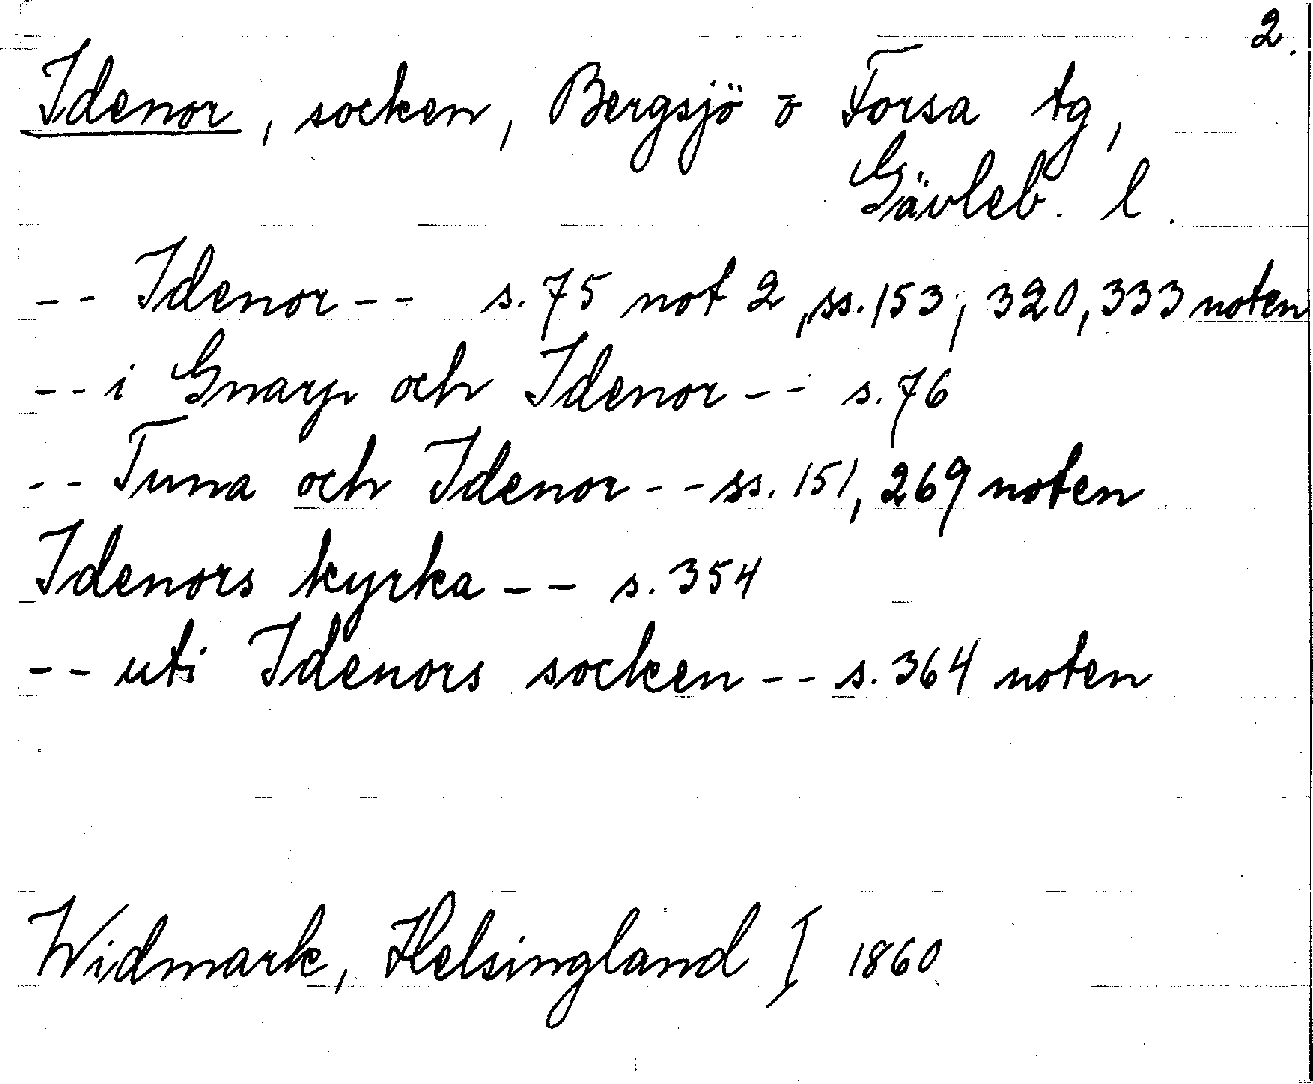 2.
Idenor, socken, Bergsjö o Forsa tg,
Gävleb. l.
-- Idenor -- s. 75 not 2, ss. 153, 320, 333 noten
-- i Gnarp och Idenor -- s. 76
-- Tuna och Idenor -- ss. 151, 269 noten
Idenors kyrka -- s. 354
-- uti Idenors socken -- s. 364 noten
Widmark, Helsingland I 1860